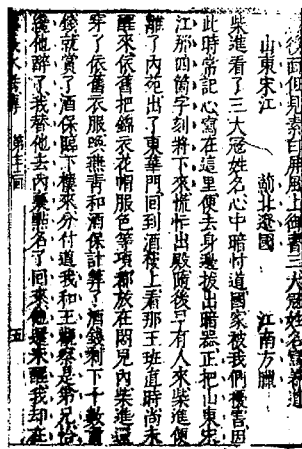 後面但見素白屏風上御書三大寇姓名寫着道
山東宋江　薊北遼國　江南方臘
柴進看了三大寇姓名心中暗忖道國家被我們擾害因
此時常記心寫在這里便去身邊拔出暗器正把山東宋
江那四箇字刻將下來慌忙出殿隨後早有人來柴進便
離了內苑出了東華門回到酒樓上看那王班直時尚未
醒來依舊把錦衣花帽服色等項都放在閤兒內柴進還
穿了依舊衣服喚燕青和酒保計算了酒錢剩下十數貫
錢就賞了酒保臨下樓來分付道我和王觀察是弟兄恰
纔他醉了我替他去內裏點名了回來他還未醒我却在
水滸傳　第　回　五